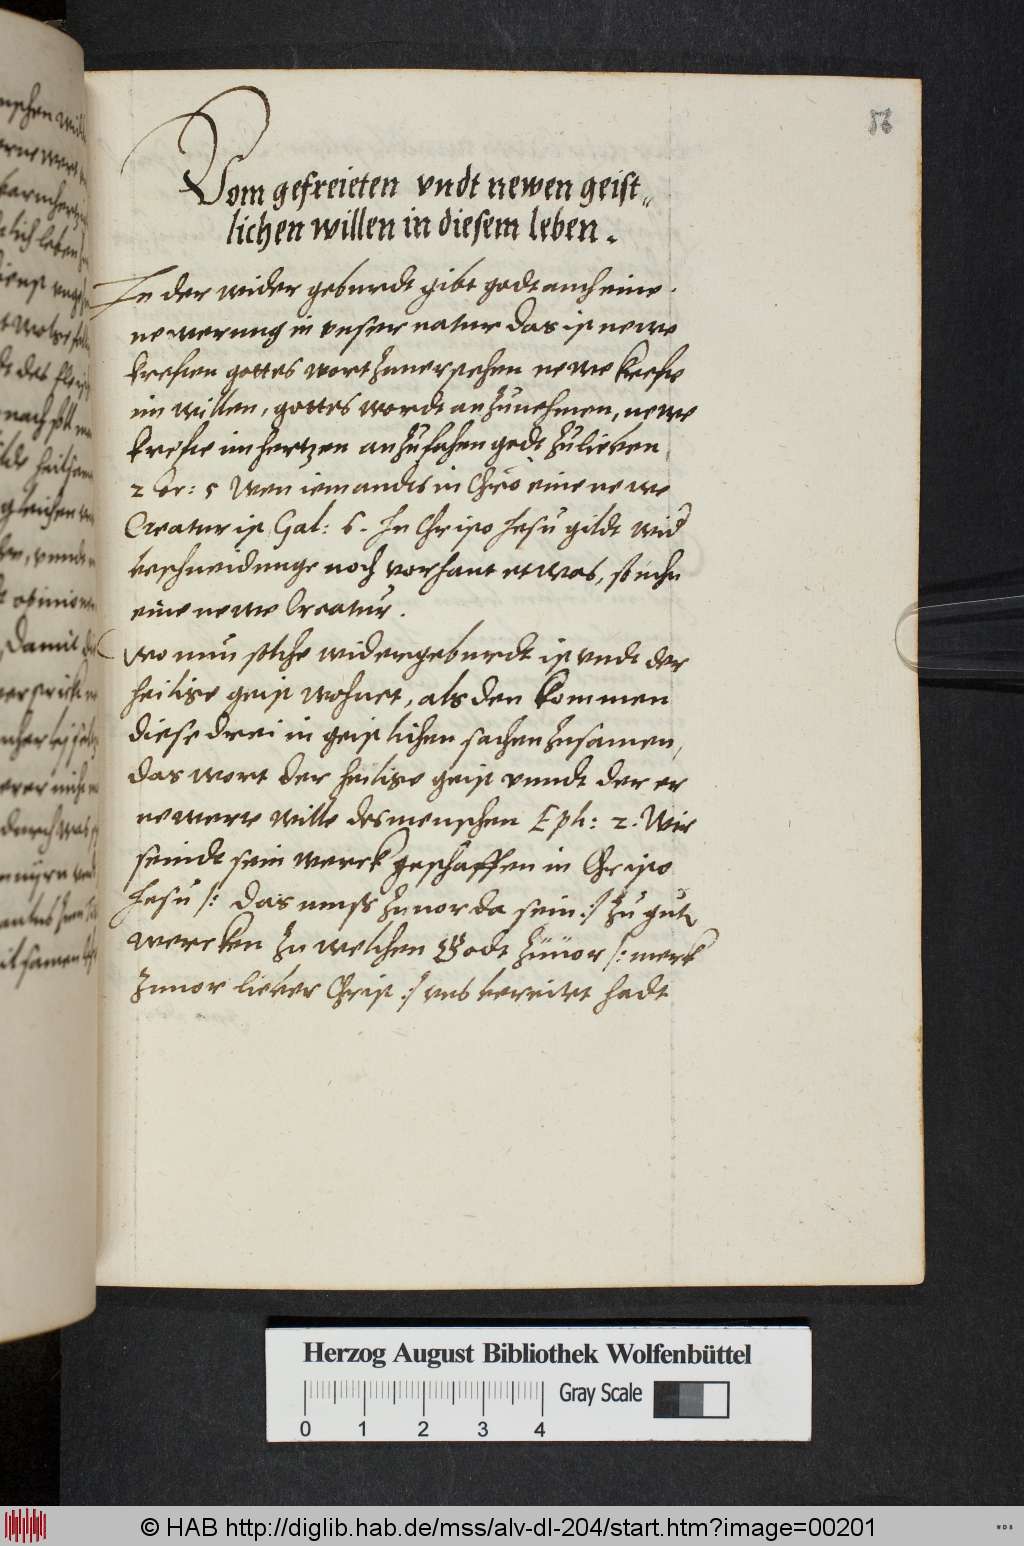 56
Vom gefreieten vndt newen geist„
lichen willen in diesem leben.
In der wider geburdt gibt godt auch eine
newerung in vnser natur das ist newe
kreften gottes wort zuuerstehen newe krefte
im willen, gottes wordt an zunehmen, newe
krefte im hertzen anzufahen godt zu lieben
2 Cor: 5 Wen iemandts in Chro eine newe
Creatur ist Gal: 6. In Christo Jesu gildt wid
beschneidunge noch vorhaut etwas, sonder
eine newe Creatur.
Wo nun solche widergeburdt ist vndt der
heilige geist wohnet, als den kommen
diese drei in geistlichen sachen zusamen,
das wort der heilige geist vnndt der er
newerte wille des menschen Eph: 2. Wir
seindt sein werck geschaffen in Christo
Jesu /: das muss zuuor da sein :/ zu gute
wercken zu welchen Godt züuor /: merk
zuuor lieber Christ :/ vns bereitet hadt
Herzog August Bibliothek Wolfenbüttel
Gray Scale
0 1 2 3 4
© HAB http://diglib.hab.de/mss/alv-dl-204/start.htm?image=00201